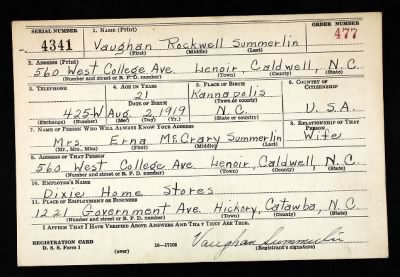 SERIAL NUMBER 1. NAME (Print) ORDER NUMBER
4341 Vaughan Rockwell Summerlin 477
(First) (Middle) (Last)
2. ADDRESS (Print)
560 West College Ave. Lenoir, Caldwell, N.C.
(Number and street or R. F. D. number) (Town) (County) (State)
3. TELEPHONE 4. AGE IN YEARS 5. PLACE OF BIRTH 6. COUNTRY OF CITIZENSHIP
21 Kannapolis
DATE OF BIRTH (Town or county)
425-W Aug. 2, 1919 N.C. U.S.A.
(Exchange) (Number) (Mo.) (Day) (Yr.) (State or country)
7. NAME OF PERSON WHO WILL ALWAYS KNOW YOUR ADDRESS 8. RELATIONSHIP OF THAT PERSON
Mrs. Erna McCrary Summerlin Wife
(Mr., Mrs., Miss) (First) (Middle) (Last)
9. ADDRESS OF THAT PERSON
560 West College Ave. Lenoir, Caldwell, N.C.
(Number and street or R. F. D. number) (Town) (County) (State)
10. EMPLOYER'S NAME
Dixie Home Stores
11. PLACE OF EMPLOYMENT OR BUSINESS
1221 Government Ave. Hickory, Catawba, N.C.
(Number and street or R. F. D. number) (Town) (County) (State)
I AFFIRM THAT I HAVE VERIFIED ABOVE ANSWERS AND THAT THEY ARE TRUE.
REGISTRATION CARD
D. S. S. Form 1 16—17105 Vaughan Summerlin
(Registrant's signature)